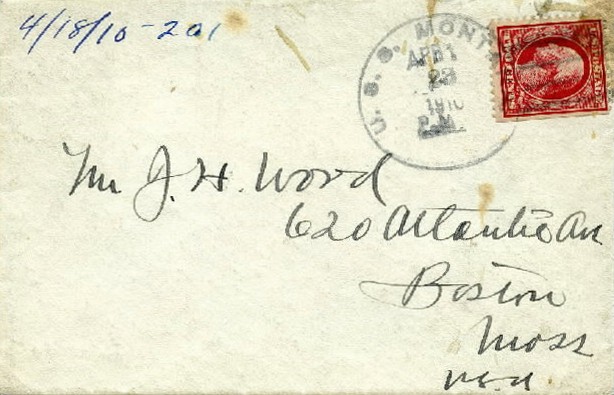 4/18/10-201
U. S. S. MONT
23
1910
P.M.
Mr J. H. Wood
620 Atlantic Av
Boston
Mass